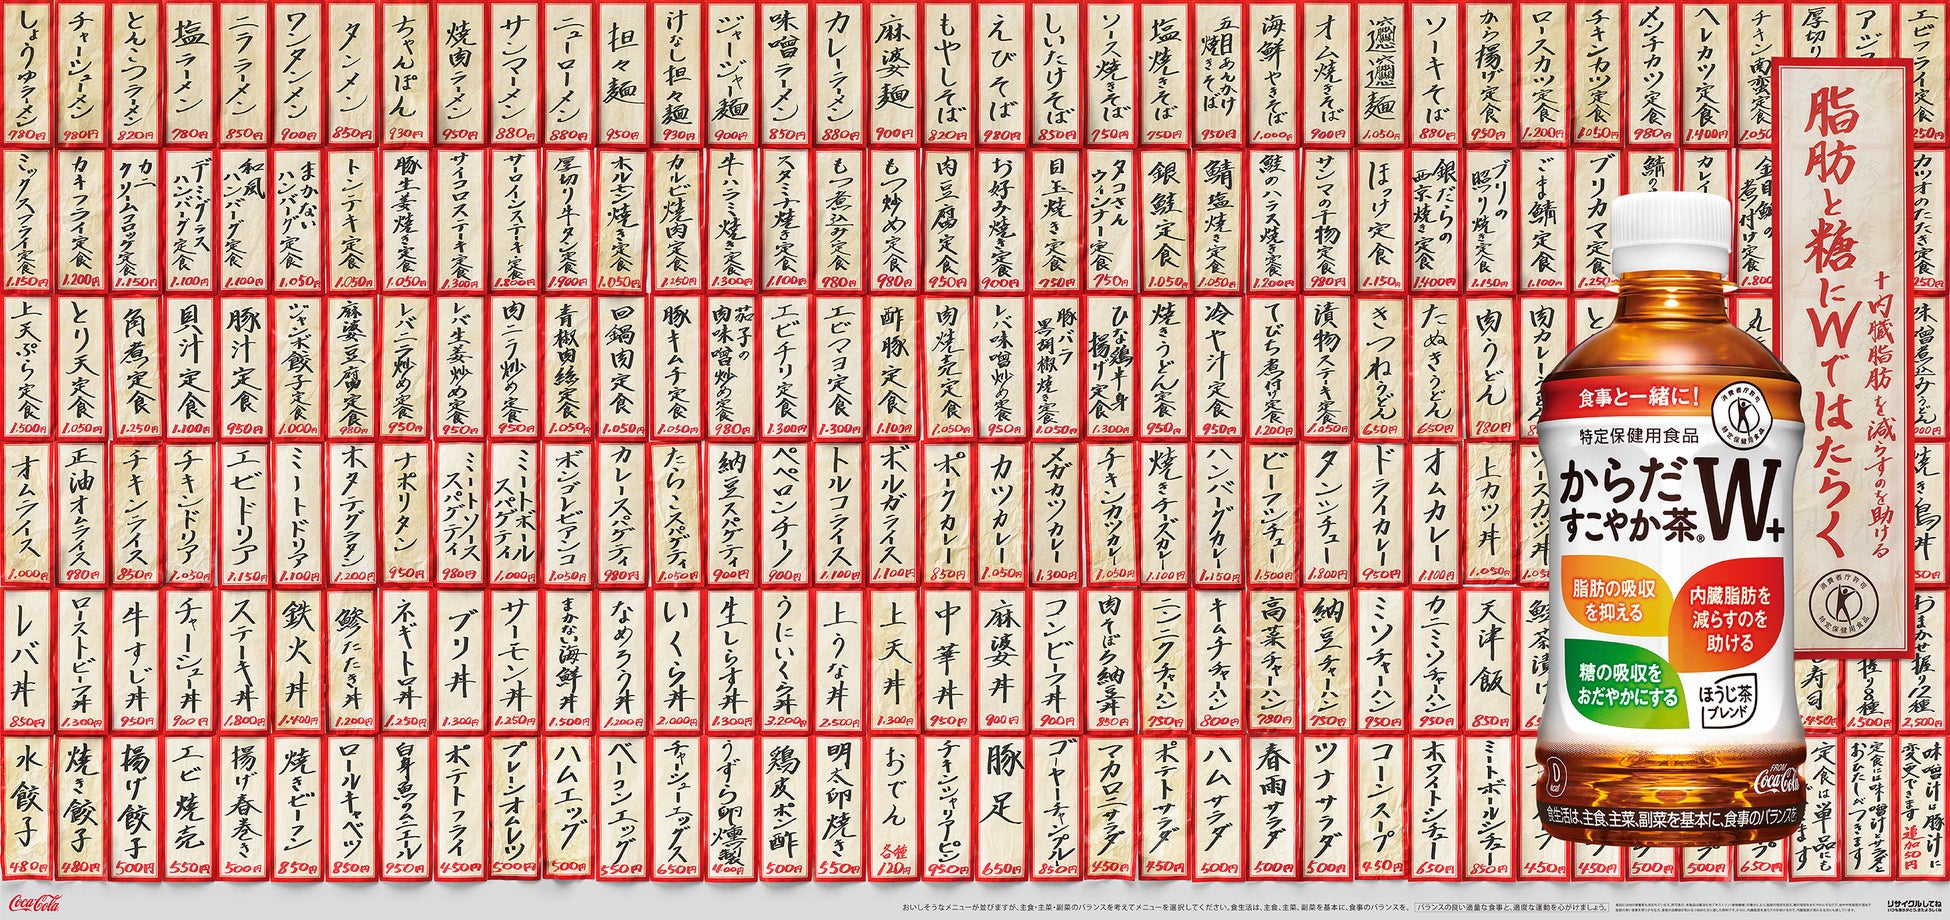 しょうゆラーメン 780円
チャーシューメン 980円
とんこつラーメン 820円
塩ラーメン 780円
ニララーメン 850円
ワンタンメン 900円
タンメン 850円
ちゃんぽん 930円
焼肉ラーメン 950円
サンマーメン 880円
ニューローメン 880円
担々麺 950円
汁なし担々麺 930円
ジャージャー麺 900円
味噌ラーメン 850円
カレーラーメン 880円
麻婆麺 900円
もやしそば 820円
えびそば 980円
しいたけそば 850円
ソース焼きそば 750円
塩焼きそば 750円
五目あんかけ焼きそば 950円
海鮮やきそば 1.000円
オム焼きそば 900円
麺 1.050円
ソーキそば 880円
から揚げ定食 950円
ロースカツ定食 1.200円
チキンカツ定食 1.050円
メンチカツ定食 980円
ヘレカツ定食 1.400円
チキン南蛮定食 1.050
厚切り
アジフ
エビフライ定食 250円
ミックスフライ定食 1.150円
カキフライ定食 1.200円
カニクリームコロッケ定食 1.150円
デミグラスハンバーグ定食 1.100円
和風ハンバーグ定食 1.100円
まかないハンバーグ定食 1.050円
トンテキ定食 1.050円
豚生姜焼き定食 1.050円
サイコロステーキ定食 1.300円
サーロインステーキ定食 1.800円
厚切り牛タン定食 1.900円
ホルモン焼き定食 1.050円
カルビ焼肉定食 1.250円
牛ハラミ焼き定食 1.300円
スタミナ焼き定食 1.100円
もつ煮込み定食 980円
もつ炒め定食 980円
肉豆腐定食 950円
お好み焼き定食 900円
目玉焼き定食 750円
タコさんウィンナー定食 750円
銀鮭定食 1.050円
鯖塩焼き定食 1.050円
鮭のハラス焼き定食 1.200円
サンマの干物定食 980円
ほっけ定食 1.150円
銀だらの西京焼き定食 1.400円
ブリの照り焼き定食 1.150円
ごま鯖定食 1.100円
ブリカマ定食 1.250
鯖の
カレイ
金目鯛の煮付け定食 1.800
カツオのたたき定食
上天ぷら定食 1.500円
とり天定食 1.050円
角煮定食 1.250円
貝汁定食 1.100円
豚汁定食 950円
ジャンボ餃子定食 1.000円
麻婆豆腐定食 980円
レバニラ炒め定食 950円
レバ生姜炒め定食 950円
肉ニラ炒め定食 950円
青椒肉絲定食 1.050円
回鍋肉定食 1.050円
豚キムチ定食 1.050円
茄子の肉味噌炒め定食 980円
エビチリ定食 1.300円
エビマヨ定食 1.300円
酢豚定食 1.100円
肉焼売定食 1.050円
レバ味噌炒め定食 950円
豚バラ黒胡椒焼き定食 1.050円
ひな鶏半身揚げ定食 1.300円
焼きうどん定食 950円
冷や汁定食 950円
てびち煮付け定食 1.200円
漬物ステーキ定食 1.050円
きつねうどん 650円
たぬきうどん 650円
肉うどん 780円
肉カレー
味噌煮込みうどん
オムライス 1.000円
正油オムライス 980円
チキンライス 850円
チキンドリア 1.050円
エビドリア 1.150円
ミートドリア 1.100円
ホタテグラタン 1.200円
ナポリタン 950円
ミートソーススパゲティ 980円
ミートボールスパゲティ 1.000円
ボンゴレビアンコ 1.050円
カレースパゲティ 980円
たらこスパゲティ 1.050円
納豆スパゲティ 900円
ペペロンチーノ 900円
トルコライス 1.100円
ボルガライス 1.100円
ポークカレー 850円
カツカレー 1.050円
メガカツカレー 1.300円
チキンカツカレー 1.050円
焼きチーズカレー 1.100円
ハンバーグカレー 1.150円
ビーフシチュー 1.500円
タンシチュー 1.800円
ドライカレー 950円
オムカレー 1.100円
上カツ丼 1.050円
ソースカツ丼 1.050
焼き鳥丼 50円
レバ丼 850円
ローストビーフ丼 1.300円
牛すじ丼 950円
チャーシュー丼 900円
ステーキ丼 1.800円
鉄火丼 1.400円
鯵たたき丼 1.200円
ネギトロ丼 1.250円
ブリ丼 1.300円
サーモン丼 1.250円
まかない海鮮丼 1.500円
なめろう丼 1.200円
いくら丼 2.000円
生しらす丼 1.300円
うにいくら丼 3.200円
上うな丼 2.500円
上天丼 1.300円
中華丼 950円
麻婆丼 900円
コンビーフ丼 900円
肉そぼろ納豆丼 850円
ニンニクチャーハン 750円
キムチチャーハン 800円
高菜チャーハン 780円
納豆チャーハン 750円
ミソチャーハン 950円
カニミソチャーハン 950円
天津飯 850円
鮭茶漬け
寿司 1.450円
握り8種 1.500円
おまかせ握り12種 2,500円
水餃子 480円
焼き餃子 480円
揚げ餃子 500円
エビ焼売 550円
揚げ春巻き 500円
焼きビーフン 850円
ロールキャベツ 850円
白身魚のムニエル 950円
ポテトフライ 450円
プレーンオムレツ 500円
ハムエッグ 500円
ベーコンエッグ 550円
チャーシューエッグス 650円
うずら卵燻製 400円
鶏皮ポン酢 500円
明太卵焼き 550円
おでん 各種120円
チキンジャリアピン 950円
豚足 650円
ゴーヤーチャンプル 850円
マカロニサラダ 450円
ポテトサラダ 450円
ハムサラダ 500円
春雨サラダ 500円
ツナサラダ 500円
コーンスープ 450円
ホワイトシチュー 650円
ミートボールシチュー 850円
定食は単品にも
ます
定食には味噌汁とサラダと
おひたしがつきます
味噌汁は豚汁に
変更できます 追加50円
脂肪と糖にWではたらく
+内臓脂肪を減らすのを助ける
消費者庁許可
特定保健用食品
食事と一緒に!
消費者庁許可
特定保健用食品
特定保健用食品
からだ
すこやか茶®
W+
脂肪の吸収
を抑える
内臓脂肪を
減らすのを
助ける
糖の吸収を
おだやかにする
ほうじ茶
ブレンド
0 kcal
FROM
Coca-Cola
食生活は、主食、主菜、副菜を基本に、食事のバランスを
Coca-Cola
おいしそうなメニューが並びますが、主食・主菜・副菜のバランスを考えてメニューを選択してください。食生活は、主食、主菜、副菜を基本に、食事のバランスを。
バランスの良い適量な食事と、適度な運動を心がけましょう。
リサイクルしてね